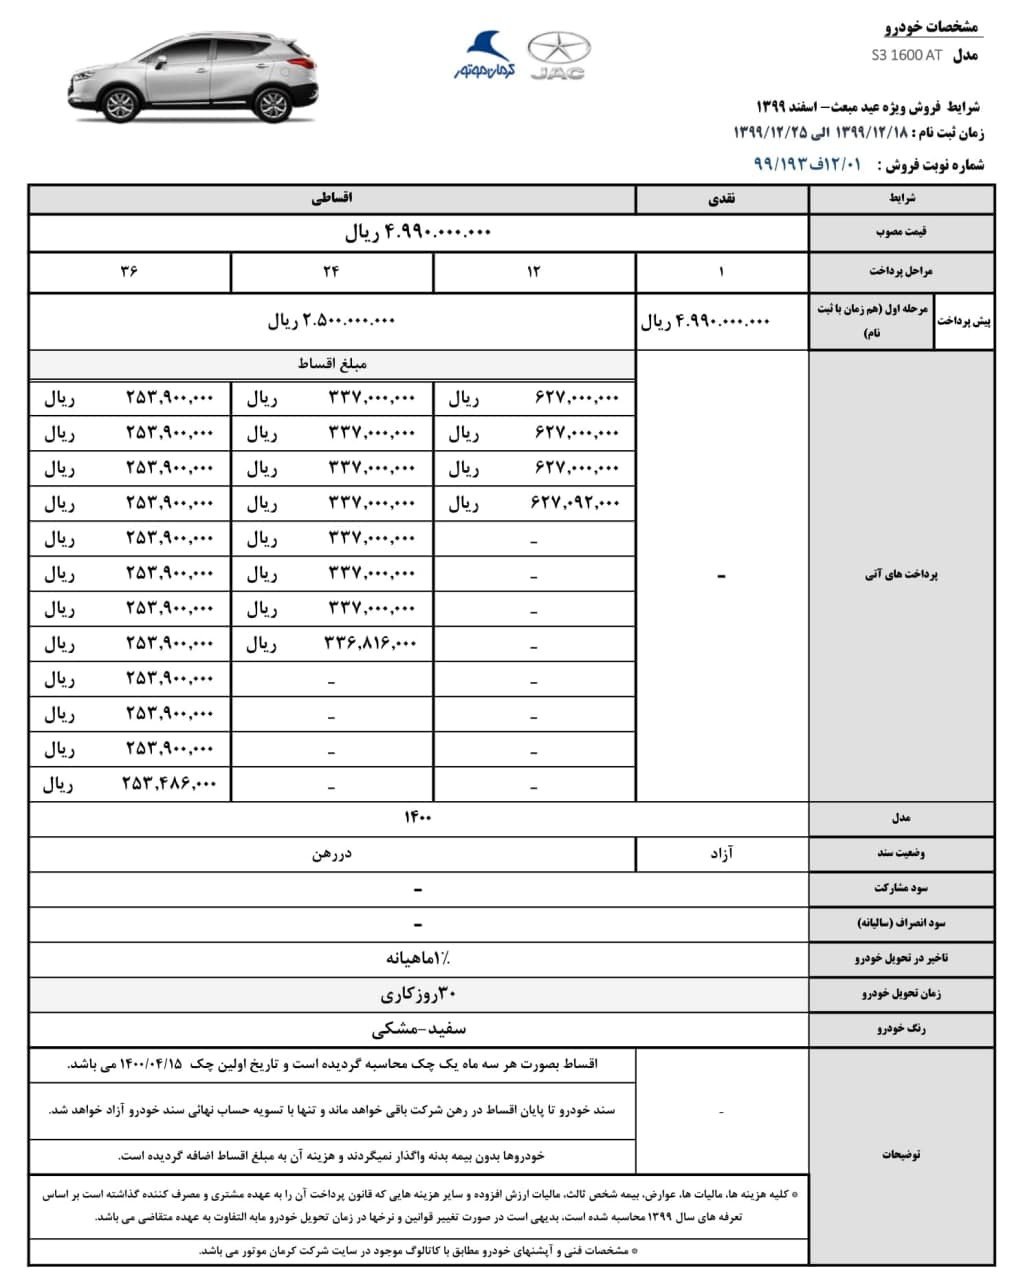 مشخصات خودرو
مدل S3 1600 AT
کرمان‌موتور
JAC
شرایط فروش ویژه عید مبعث- اسفند ۱۳۹۹
زمان ثبت نام : ۱۳۹۹/۱۲/۱۸ الی ۱۳۹۹/۱۲/۲۵
شماره نوبت فروش : ۱۲/۰۱ف۹۹/۱۹۳
شرایط نقدی اقساطی
قیمت مصوب ۴.۹۹۰.۰۰۰.۰۰۰ ریال
مراحل پرداخت ۱ ۱۲ ۲۴ ۳۶
پیش پرداخت مرحله اول (هم زمان با ثبت نام) ۴.۹۹۰.۰۰۰.۰۰۰ ریال ۲.۵۰۰.۰۰۰.۰۰۰ ریال
مبلغ اقساط
پرداخت های آتی -
۶۲۷,۰۰۰,۰۰۰ ریال ۳۳۷,۰۰۰,۰۰۰ ریال ۲۵۳,۹۰۰,۰۰۰ ریال
۶۲۷,۰۰۰,۰۰۰ ریال ۳۳۷,۰۰۰,۰۰۰ ریال ۲۵۳,۹۰۰,۰۰۰ ریال
۶۲۷,۰۰۰,۰۰۰ ریال ۳۳۷,۰۰۰,۰۰۰ ریال ۲۵۳,۹۰۰,۰۰۰ ریال
۶۲۷,۰۹۲,۰۰۰ ریال ۳۳۷,۰۰۰,۰۰۰ ریال ۲۵۳,۹۰۰,۰۰۰ ریال
- ۳۳۷,۰۰۰,۰۰۰ ریال ۲۵۳,۹۰۰,۰۰۰ ریال
- ۳۳۷,۰۰۰,۰۰۰ ریال ۲۵۳,۹۰۰,۰۰۰ ریال
- ۳۳۷,۰۰۰,۰۰۰ ریال ۲۵۳,۹۰۰,۰۰۰ ریال
- ۳۳۶,۸۱۶,۰۰۰ ریال ۲۵۳,۹۰۰,۰۰۰ ریال
- - ۲۵۳,۹۰۰,۰۰۰ ریال
- - ۲۵۳,۹۰۰,۰۰۰ ریال
- - ۲۵۳,۹۰۰,۰۰۰ ریال
- - ۲۵۳,۴۸۶,۰۰۰ ریال
مدل ۱۴۰۰
وضعیت سند آزاد دررهن
سود مشارکت -
سود انصراف (سالیانه) -
تاخیر در تحویل خودرو ۱٪ماهیانه
زمان تحویل خودرو ۳۰روزکاری
رنگ خودرو سفید-مشکی
توضیحات -
اقساط بصورت هر سه ماه یک چک محاسبه گردیده است و تاریخ اولین چک ۱۴۰۰/۰۴/۱۵ می باشد.
سند خودرو تا پایان اقساط در رهن شرکت باقی خواهد ماند و تنها با تسویه حساب نهائی سند خودرو آزاد خواهد شد.
خودروها بدون بیمه بدنه واگذار نمیگردند و هزینه آن به مبلغ اقساط اضافه گردیده است.
* کلیه هزینه ها، مالیات ها، عوارض، بیمه شخص ثالث، مالیات ارزش افزوده و سایر هزینه هایی که قانون پرداخت آن را به عهده مشتری و مصرف کننده گذاشته است بر اساس
تعرفه های سال ۱۳۹۹ محاسبه شده است، بدیهی است در صورت تغییر قوانین و نرخها در زمان تحویل خودرو مابه التفاوت به عهده متقاضی می باشد.
* مشخصات فنی و آپشنهای خودرو مطابق با کاتالوگ موجود در سایت شرکت کرمان موتور می باشد.